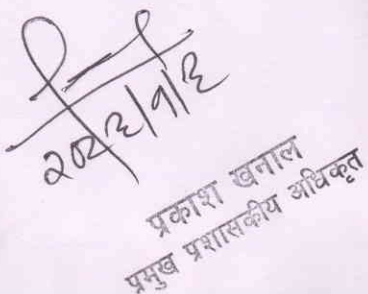 २०८३/१/३
प्रकाश खनाल
प्रमुख प्रशासकीय अधिकृत